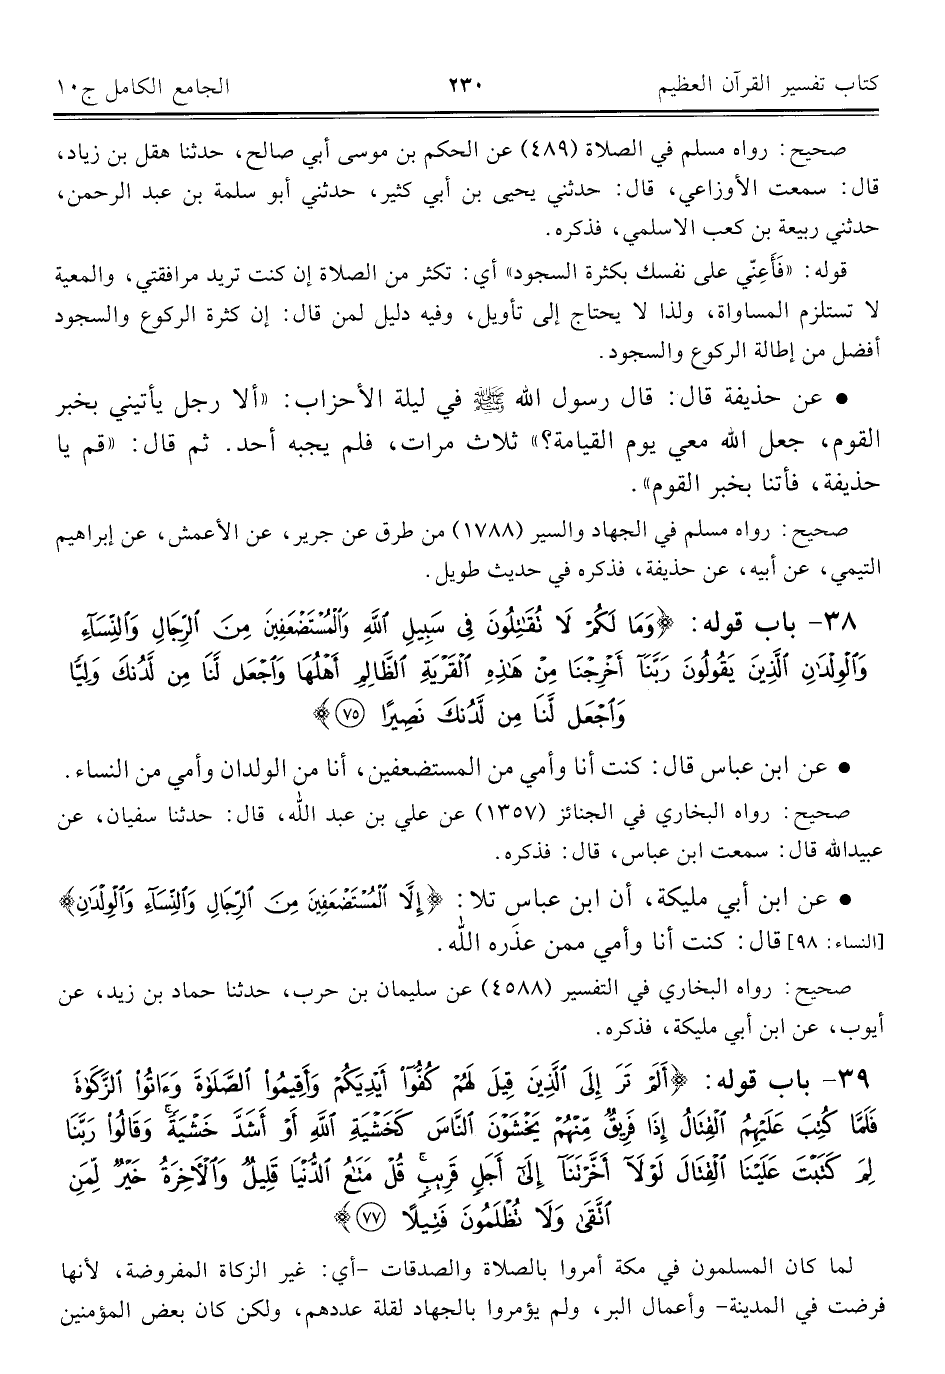 كتاب تفسير القرآن العظيم ٢٣٠ الجامع الكامل ج١٠
صحيح: رواه مسلم في الصلاة (٤٨٩) عن الحكم بن موسى أبي صالح، حدثنا هقل بن زياد،
قال: سمعت الأوزاعي، قال: حدثني يحيى بن أبي كثير، حدثني أبو سلمة بن عبد الرحمن،
حدثني ربيعة بن كعب الاسلمي، فذكره.
قوله: «فَأَعِنّي على نفسك بكثرة السجود» أي: تكثر من الصلاة إن كنت تريد مرافقتي، والمعية
لا تستلزم المساواة، ولذا لا يحتاج إلى تأويل، وفيه دليل لمن قال: إن كثرة الركوع والسجود
أفضل من إطالة الركوع والسجود.
• عن حذيفة قال: قال رسول الله ﷺ في ليلة الأحزاب: «ألا رجل يأتيني بخبر
القوم، جعل الله معي يوم القيامة؟» ثلاث مرات، فلم يجبه أحد. ثم قال: «قم يا
حذيفة، فأتنا بخبر القوم».
صحيح: رواه مسلم في الجهاد والسير (١٧٨٨) من طرق عن جرير، عن الأعمش، عن إبراهيم
التيمي، عن أبيه، عن حذيفة، فذكره في حديث طويل.
٣٨- باب قوله: ﴿وَمَا لَكُمْ لَا تُقَٰتِلُونَ فِى سَبِيلِ ٱللَّهِ وَٱلْمُسْتَضْعَفِينَ مِنَ ٱلرِّجَالِ وَٱلنِّسَآءِ
وَٱلْوِلْدَٰنِ ٱلَّذِينَ يَقُولُونَ رَبَّنَآ أَخْرِجْنَا مِنْ هَٰذِهِ ٱلْقَرْيَةِ ٱلظَّالِمِ أَهْلُهَا وَٱجْعَل لَّنَا مِن لَّدُنكَ وَلِيًّا
وَٱجْعَل لَّنَا مِن لَّدُنكَ نَصِيرًا (٧٥)﴾
• عن ابن عباس قال: كنت أنا وأمي من المستضعفين، أنا من الولدان وأمي من النساء.
صحيح: رواه البخاري في الجنائز (١٣٥٧) عن علي بن عبد الله، قال: حدثنا سفيان، عن
عبيدالله قال: سمعت ابن عباس، قال: فذكره.
• عن ابن أبي مليكة، أن ابن عباس تلا: ﴿إِلَّا ٱلْمُسْتَضْعَفِينَ مِنَ ٱلرِّجَالِ وَٱلنِّسَآءِ وَٱلْوِلْدَٰنِ﴾
[النساء: ٩٨] قال: كنت أنا وأمي ممن عذَره الله.
صحيح: رواه البخاري في التفسير (٤٥٨٨) عن سليمان بن حرب، حدثنا حماد بن زيد، عن
أيوب، عن ابن أبي مليكة، فذكره.
٣٩- باب قوله: ﴿أَلَمْ تَرَ إِلَى ٱلَّذِينَ قِيلَ لَهُمْ كُفُّوٓا۟ أَيْدِيَكُمْ وَأَقِيمُوا۟ ٱلصَّلَوٰةَ وَءَاتُوا۟ ٱلزَّكَوٰةَ
فَلَمَّا كُتِبَ عَلَيْهِمُ ٱلْقِتَالُ إِذَا فَرِيقٌ مِّنْهُمْ يَخْشَوْنَ ٱلنَّاسَ كَخَشْيَةِ ٱللَّهِ أَوْ أَشَدَّ خَشْيَةً ۚ وَقَالُوا۟ رَبَّنَا
لِمَ كَتَبْتَ عَلَيْنَا ٱلْقِتَالَ لَوْلَآ أَخَّرْتَنَآ إِلَىٰٓ أَجَلٍ قَرِيبٍ ۗ قُلْ مَتَٰعُ ٱلدُّنْيَا قَلِيلٌ وَٱلْءَاخِرَةُ خَيْرٌ لِّمَنِ
ٱتَّقَىٰ وَلَا تُظْلَمُونَ فَتِيلًا (٧٧)﴾
لما كان المسلمون في مكة أمروا بالصلاة والصدقات -أي: غير الزكاة المفروضة، لأنها
فرضت في المدينة- وأعمال البر، ولم يؤمروا بالجهاد لقلة عددهم، ولكن كان بعض المؤمنين